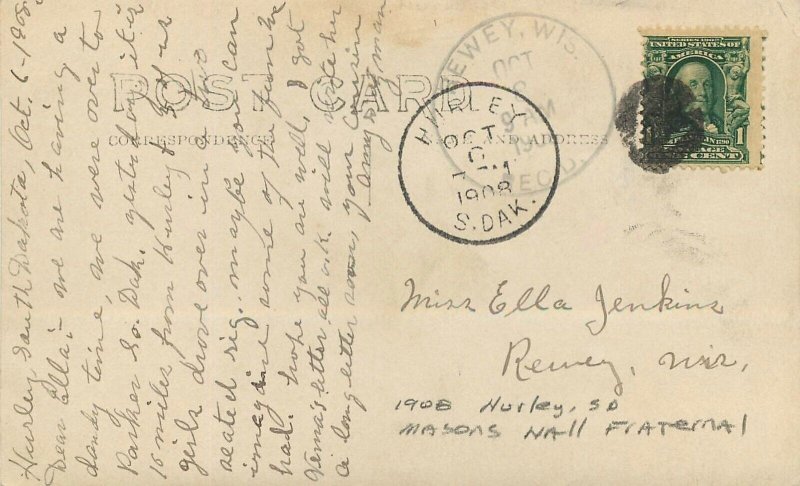 Hurley, South Dakota, Oct. 6-1908
Dear Ella:- We are having a
dandy time, we were over to
Parker So. Dak. yesterday it is
16 miles from Hurley 5 of us
girls drove over in a two
seated rig. maybe you can
imagine some of the fun we
had. hope you are well, I got
Verna's letter all o.k. will write her
a long letter soon, your cousin
Amy
POST CARD
CORRESPONDENCE
NAME AND ADDRESS
REWEY, WIS.
OCT
REC'D.
HURLEY
OCT
6
1908
S. DAK.
SERIES 1902
UNITED STATES OF
AMERICA
1
ONE CENT
Miss Ella Jenkins
Rewey, Wis.
1908 Hurley, SD
MASONS HALL FRATERNAL